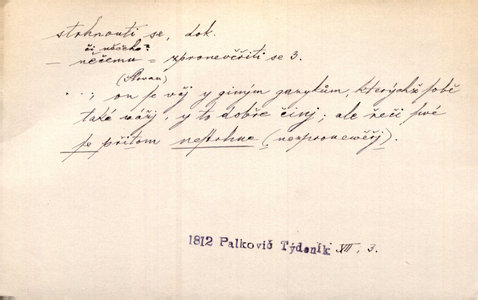 strhnouti se, dok.
či něčeho?
— něčemu = zpronevěřiti se 3.
(Slovan)
. . , on se věj y giným gazykům, kterýchž sobě
také wážj, y to dobře činj; ale řeči swé
se přitom nestrhne (nezpronewěřj).
1812 Palkovič Týdeník VII, 3.